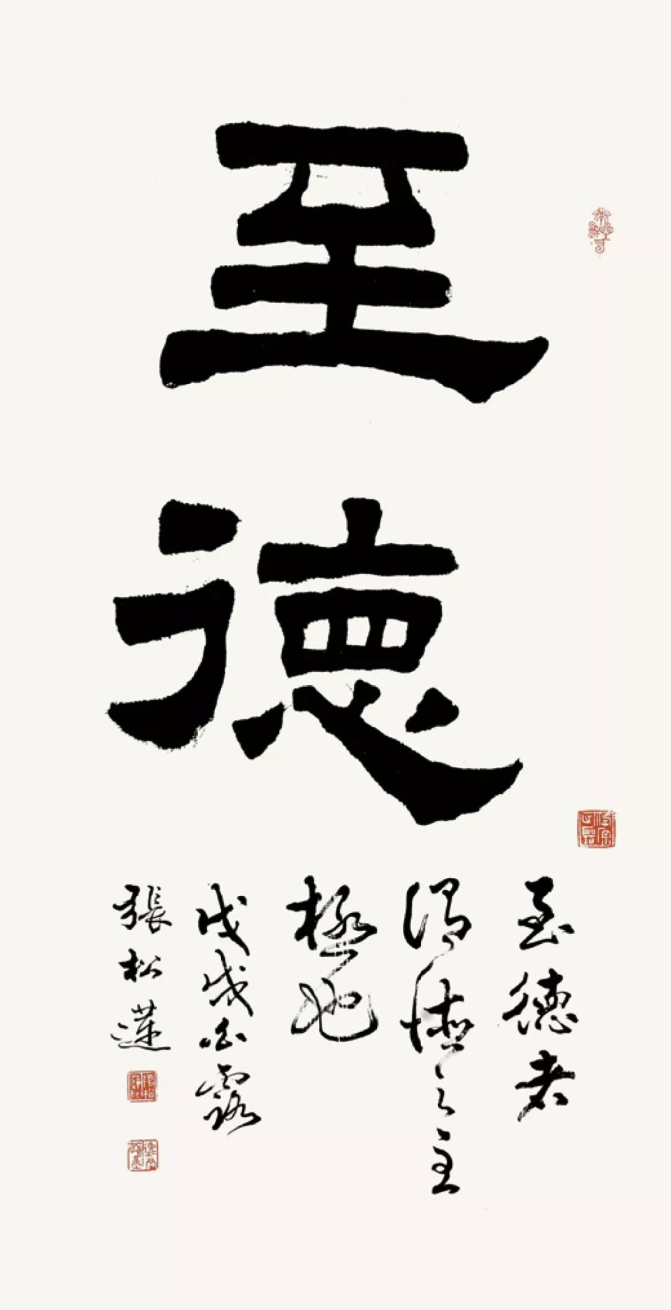 至
德
至德者
谓德之主
极也
戊戌白露
張松蓮